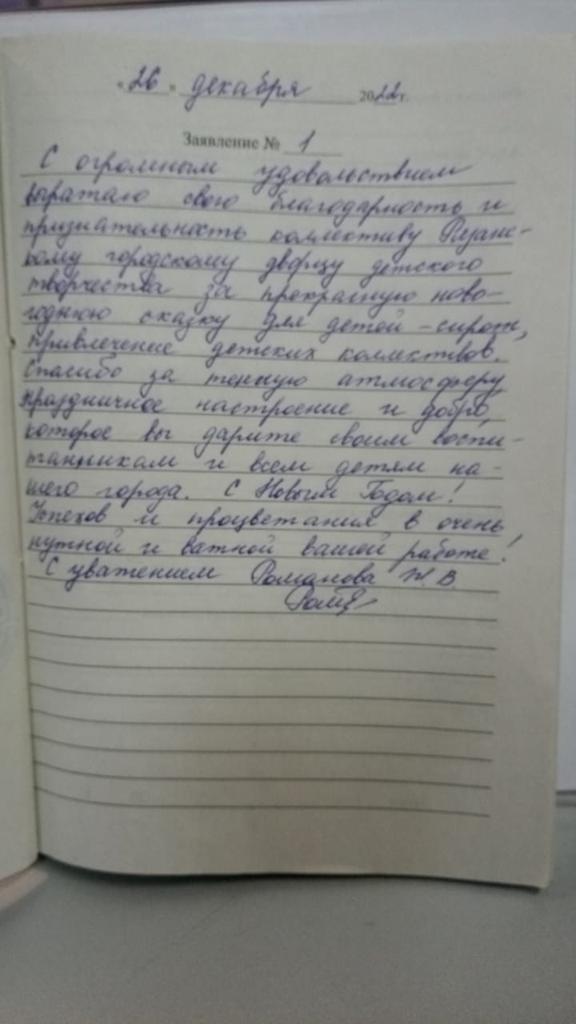 « 26 » декабря 2022 г.
Заявление № 1
С огромным удовольствием
выражаю свою благодарность и
признательность коллективу Рязанс-
кому городскому дворцу детского
творчества за прекрасную ново-
годнюю сказку для детей-сирот,
привлечение детских коллективов.
Спасибо за теплую атмосферу,
праздничное настроение и добро,
которое вы дарите своим воспи-
танникам и всем детям на-
шего города. С Новым Годом!
Успехов и процветания в очень
нужной и важной вашей работе!
С уважением Романова Ж.В.